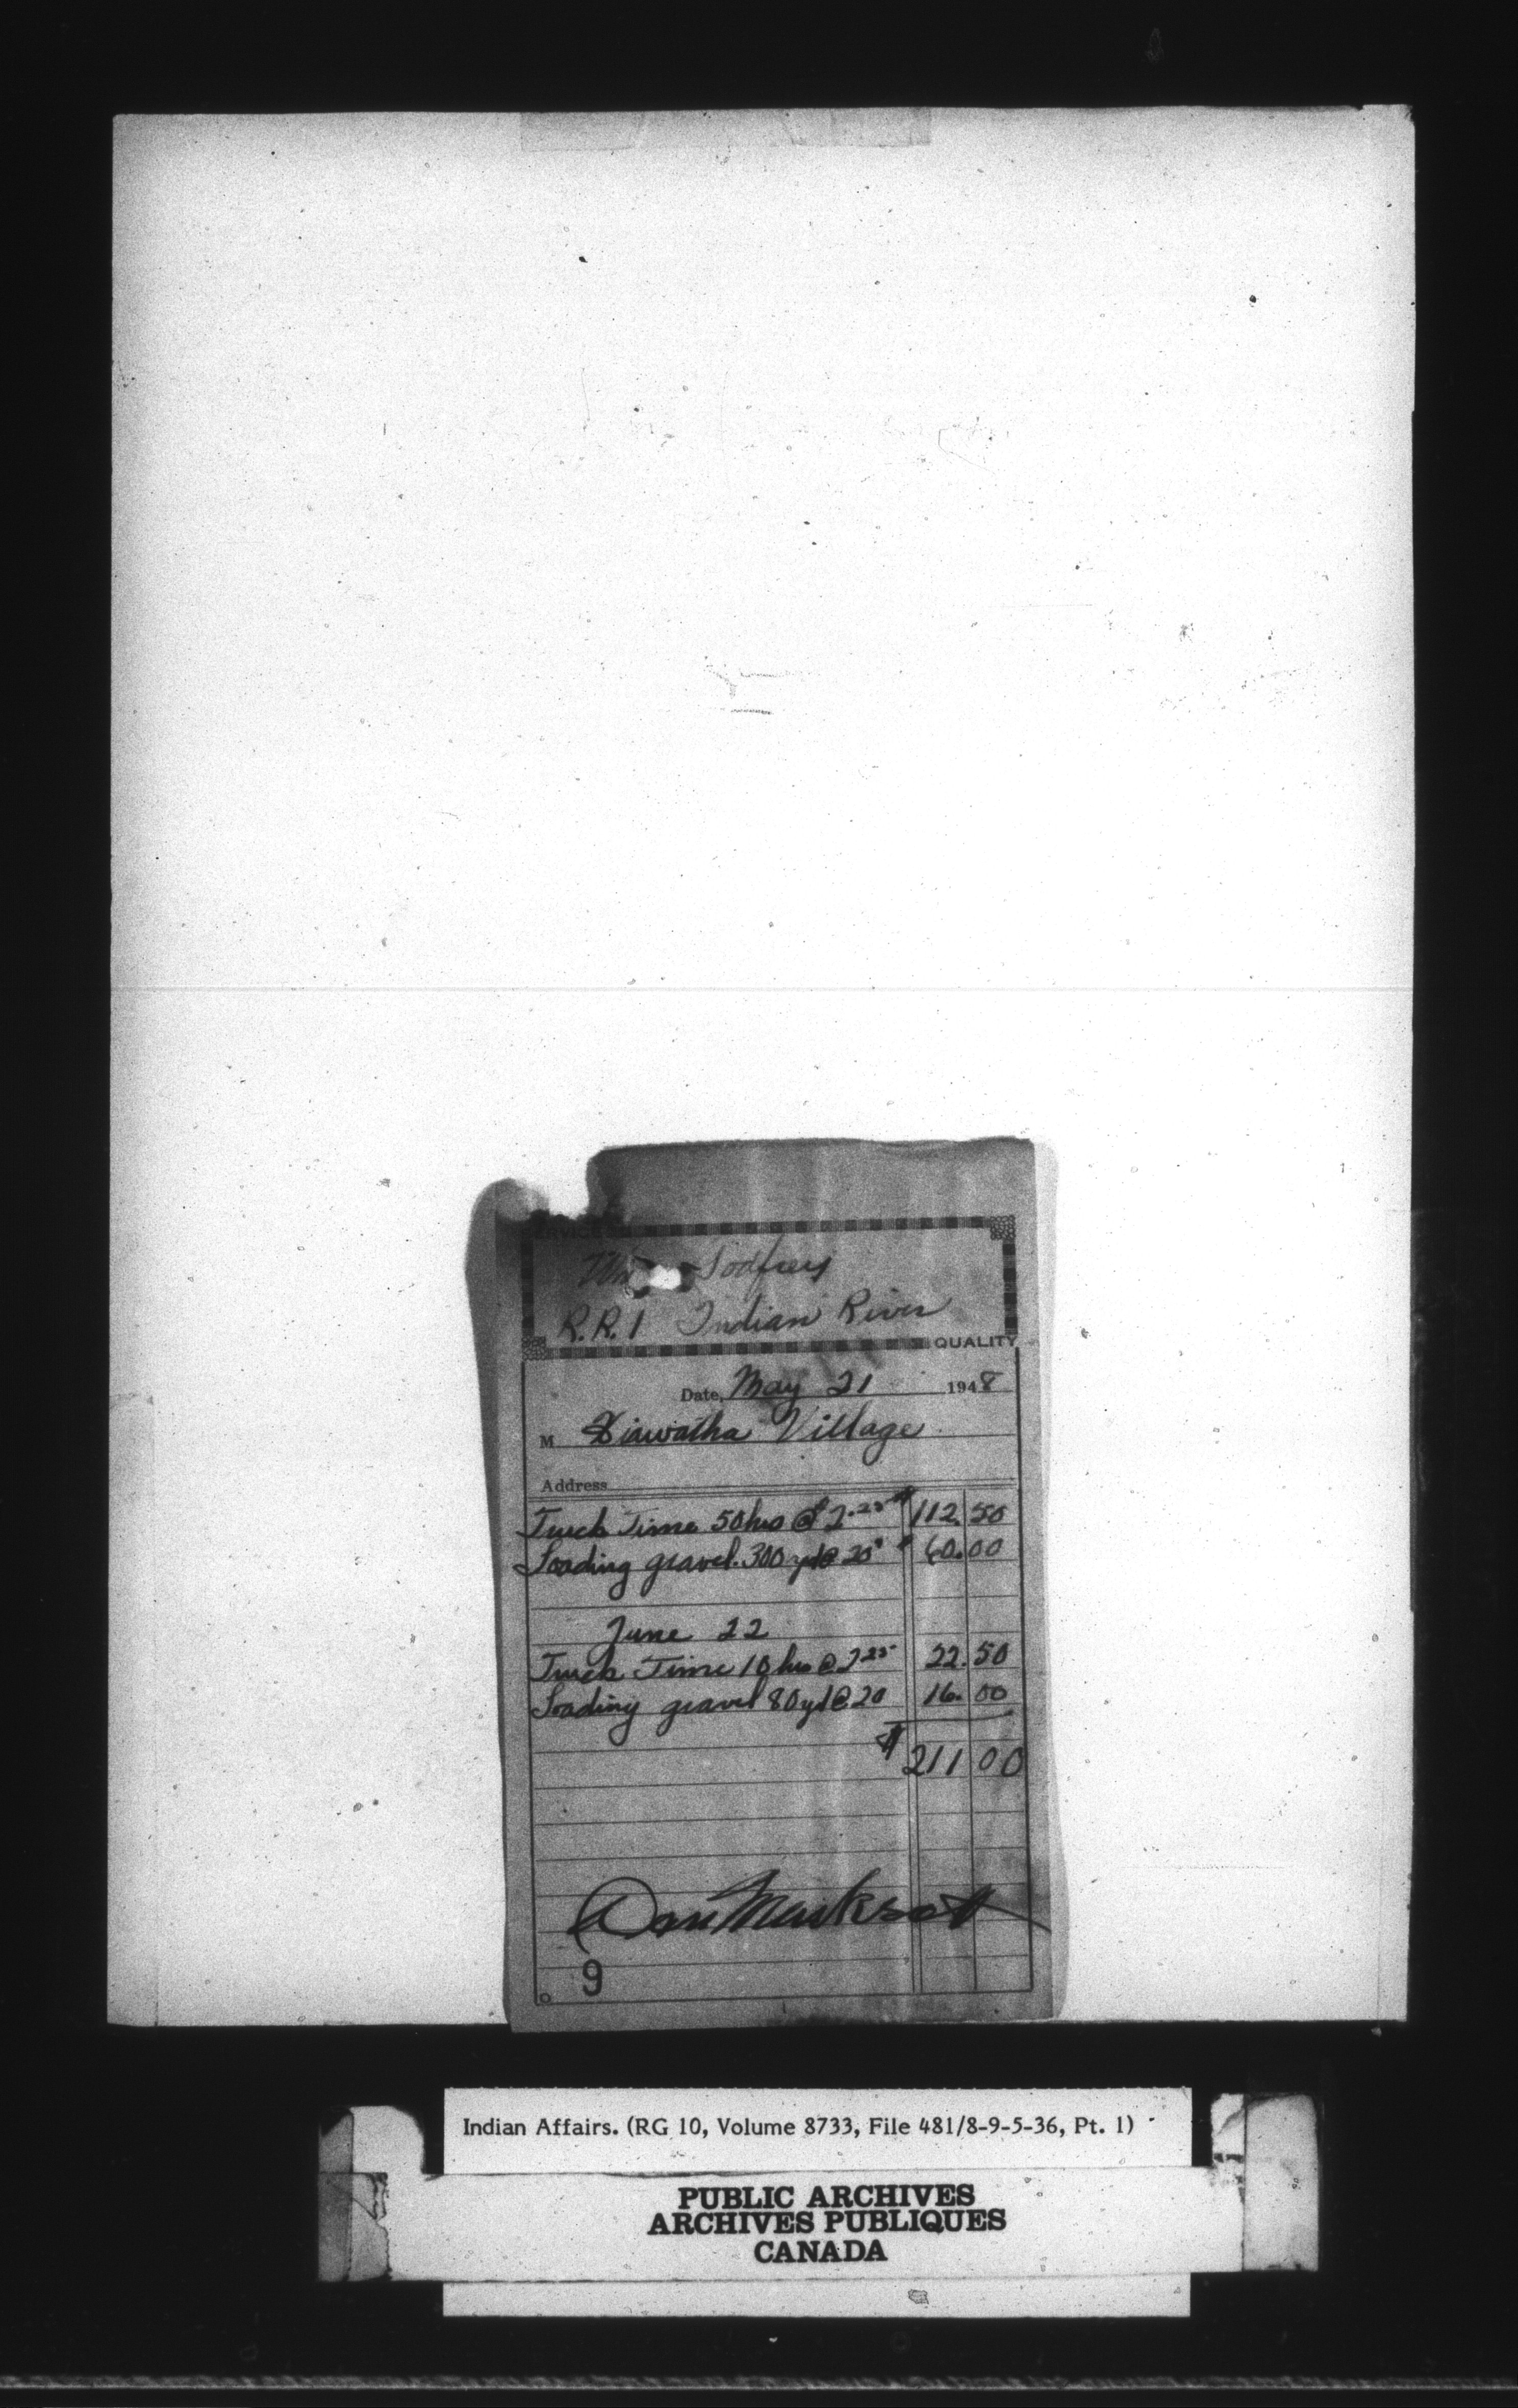 SERVICE
Wm Godfrey
R.R. 1 Indian River
QUALITY
Date, May 21 1948
M Hiawatha Village
Address
Truck Time 50 hrs @ $2.25 $112.50
Loading gravel. 300 yd @ 20¢ $60.00
June 22
Truck Time 10 hrs @ 2.25 22.50
Loading gravel 80 yd @ 20 16.00
$211 00
9
Indian Affairs. (RG 10, Volume 8733, File 481/8-9-5-36, Pt. 1)
PUBLIC ARCHIVES
ARCHIVES PUBLIQUES
CANADA